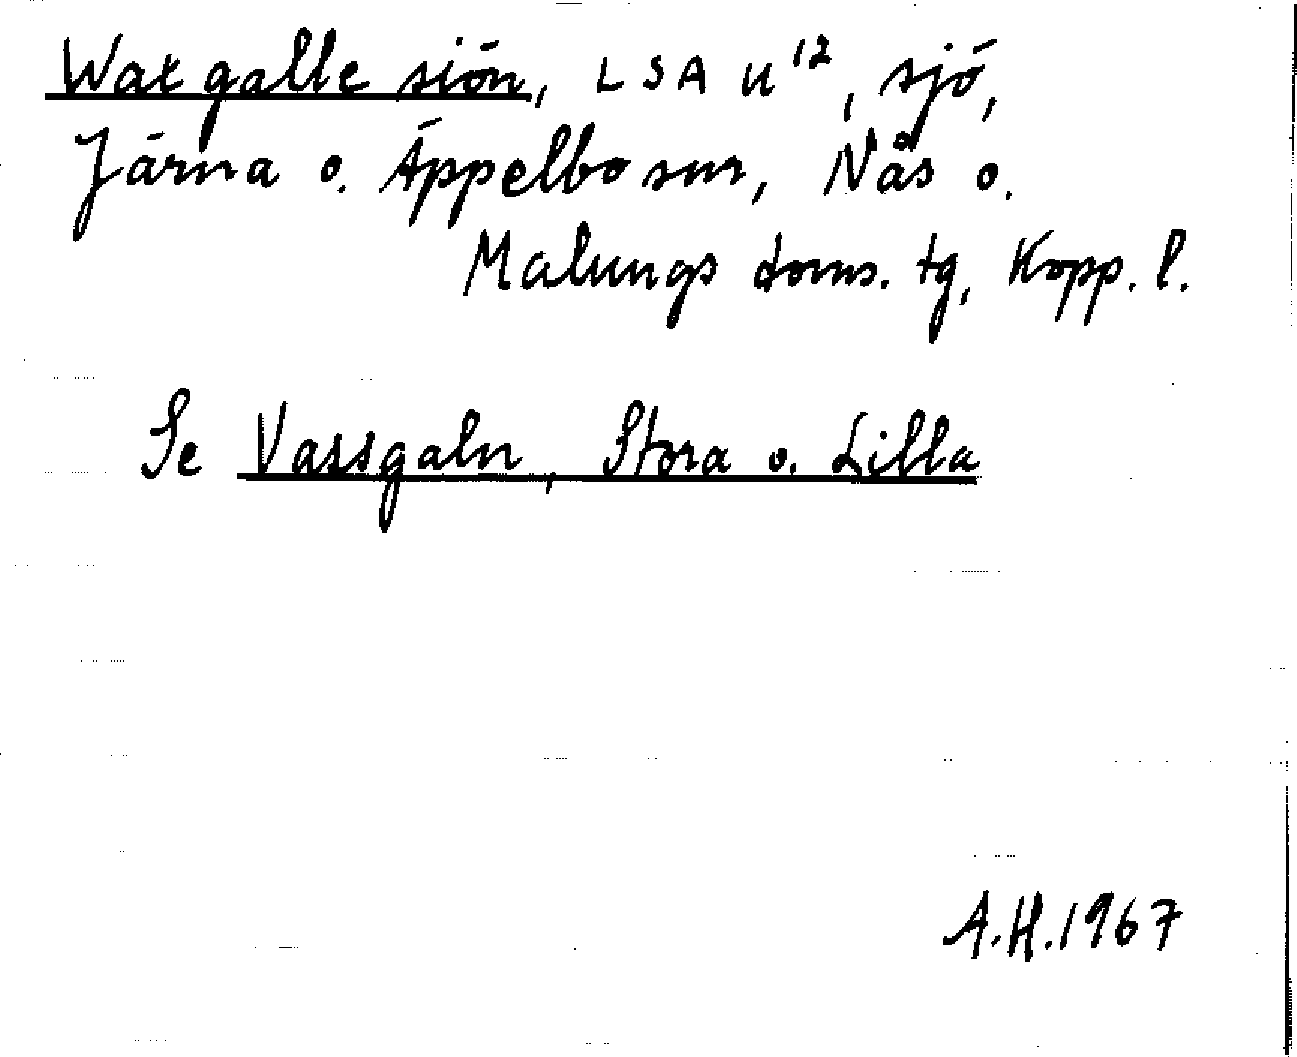 Watgalle siön, LSA U¹², sjö,
Järna o. Äppelbo snr, Nås o.
Malungs doms. tg, Kopp. l.
Se Vassgaln, Stora o. Lilla
A.H.1967